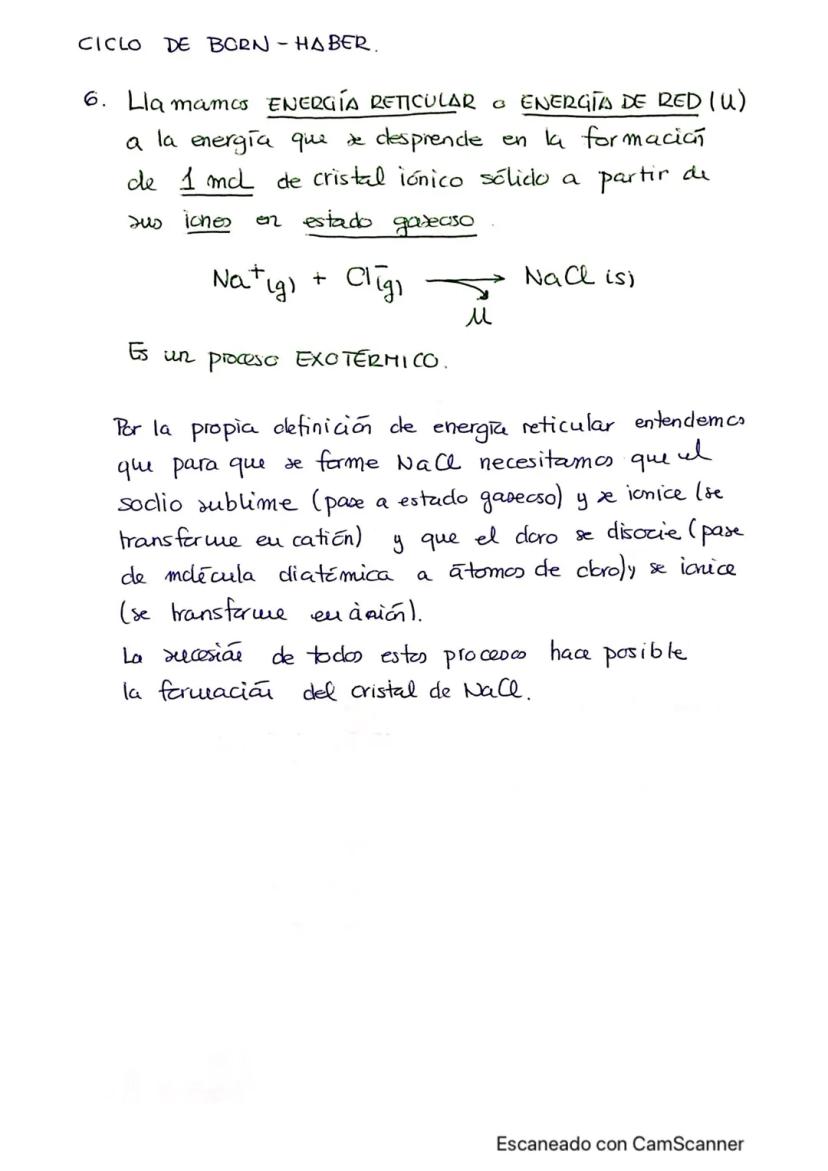 CICLO DE BORN-HABER.
6. Llamamos ENERGÍA RETICULAR o ENERGÍA DE RED (U)
a la energía que se desprende en la formación
de 1 mol de cristal iónico sólido a partir de
sus iones en estado gaseoso.
Na⁺(g) + Cl⁻(g) → NaCl (s)
U
Es un proceso EXOTÉRMICO.
Por la propia definición de energía reticular entendemos
que para que se forme NaCl necesitamos que el
sodio sublime (pase a estado gaseoso) y se ionice (se
transforme en catión) y que el cloro se disocie (pase
de molécula diatómica a átomos de cloro) y se ionice
(se transforme en anión).
La sucesión de todos estos procesos hace posible
la formación del cristal de NaCl.
Escaneado con CamScanner